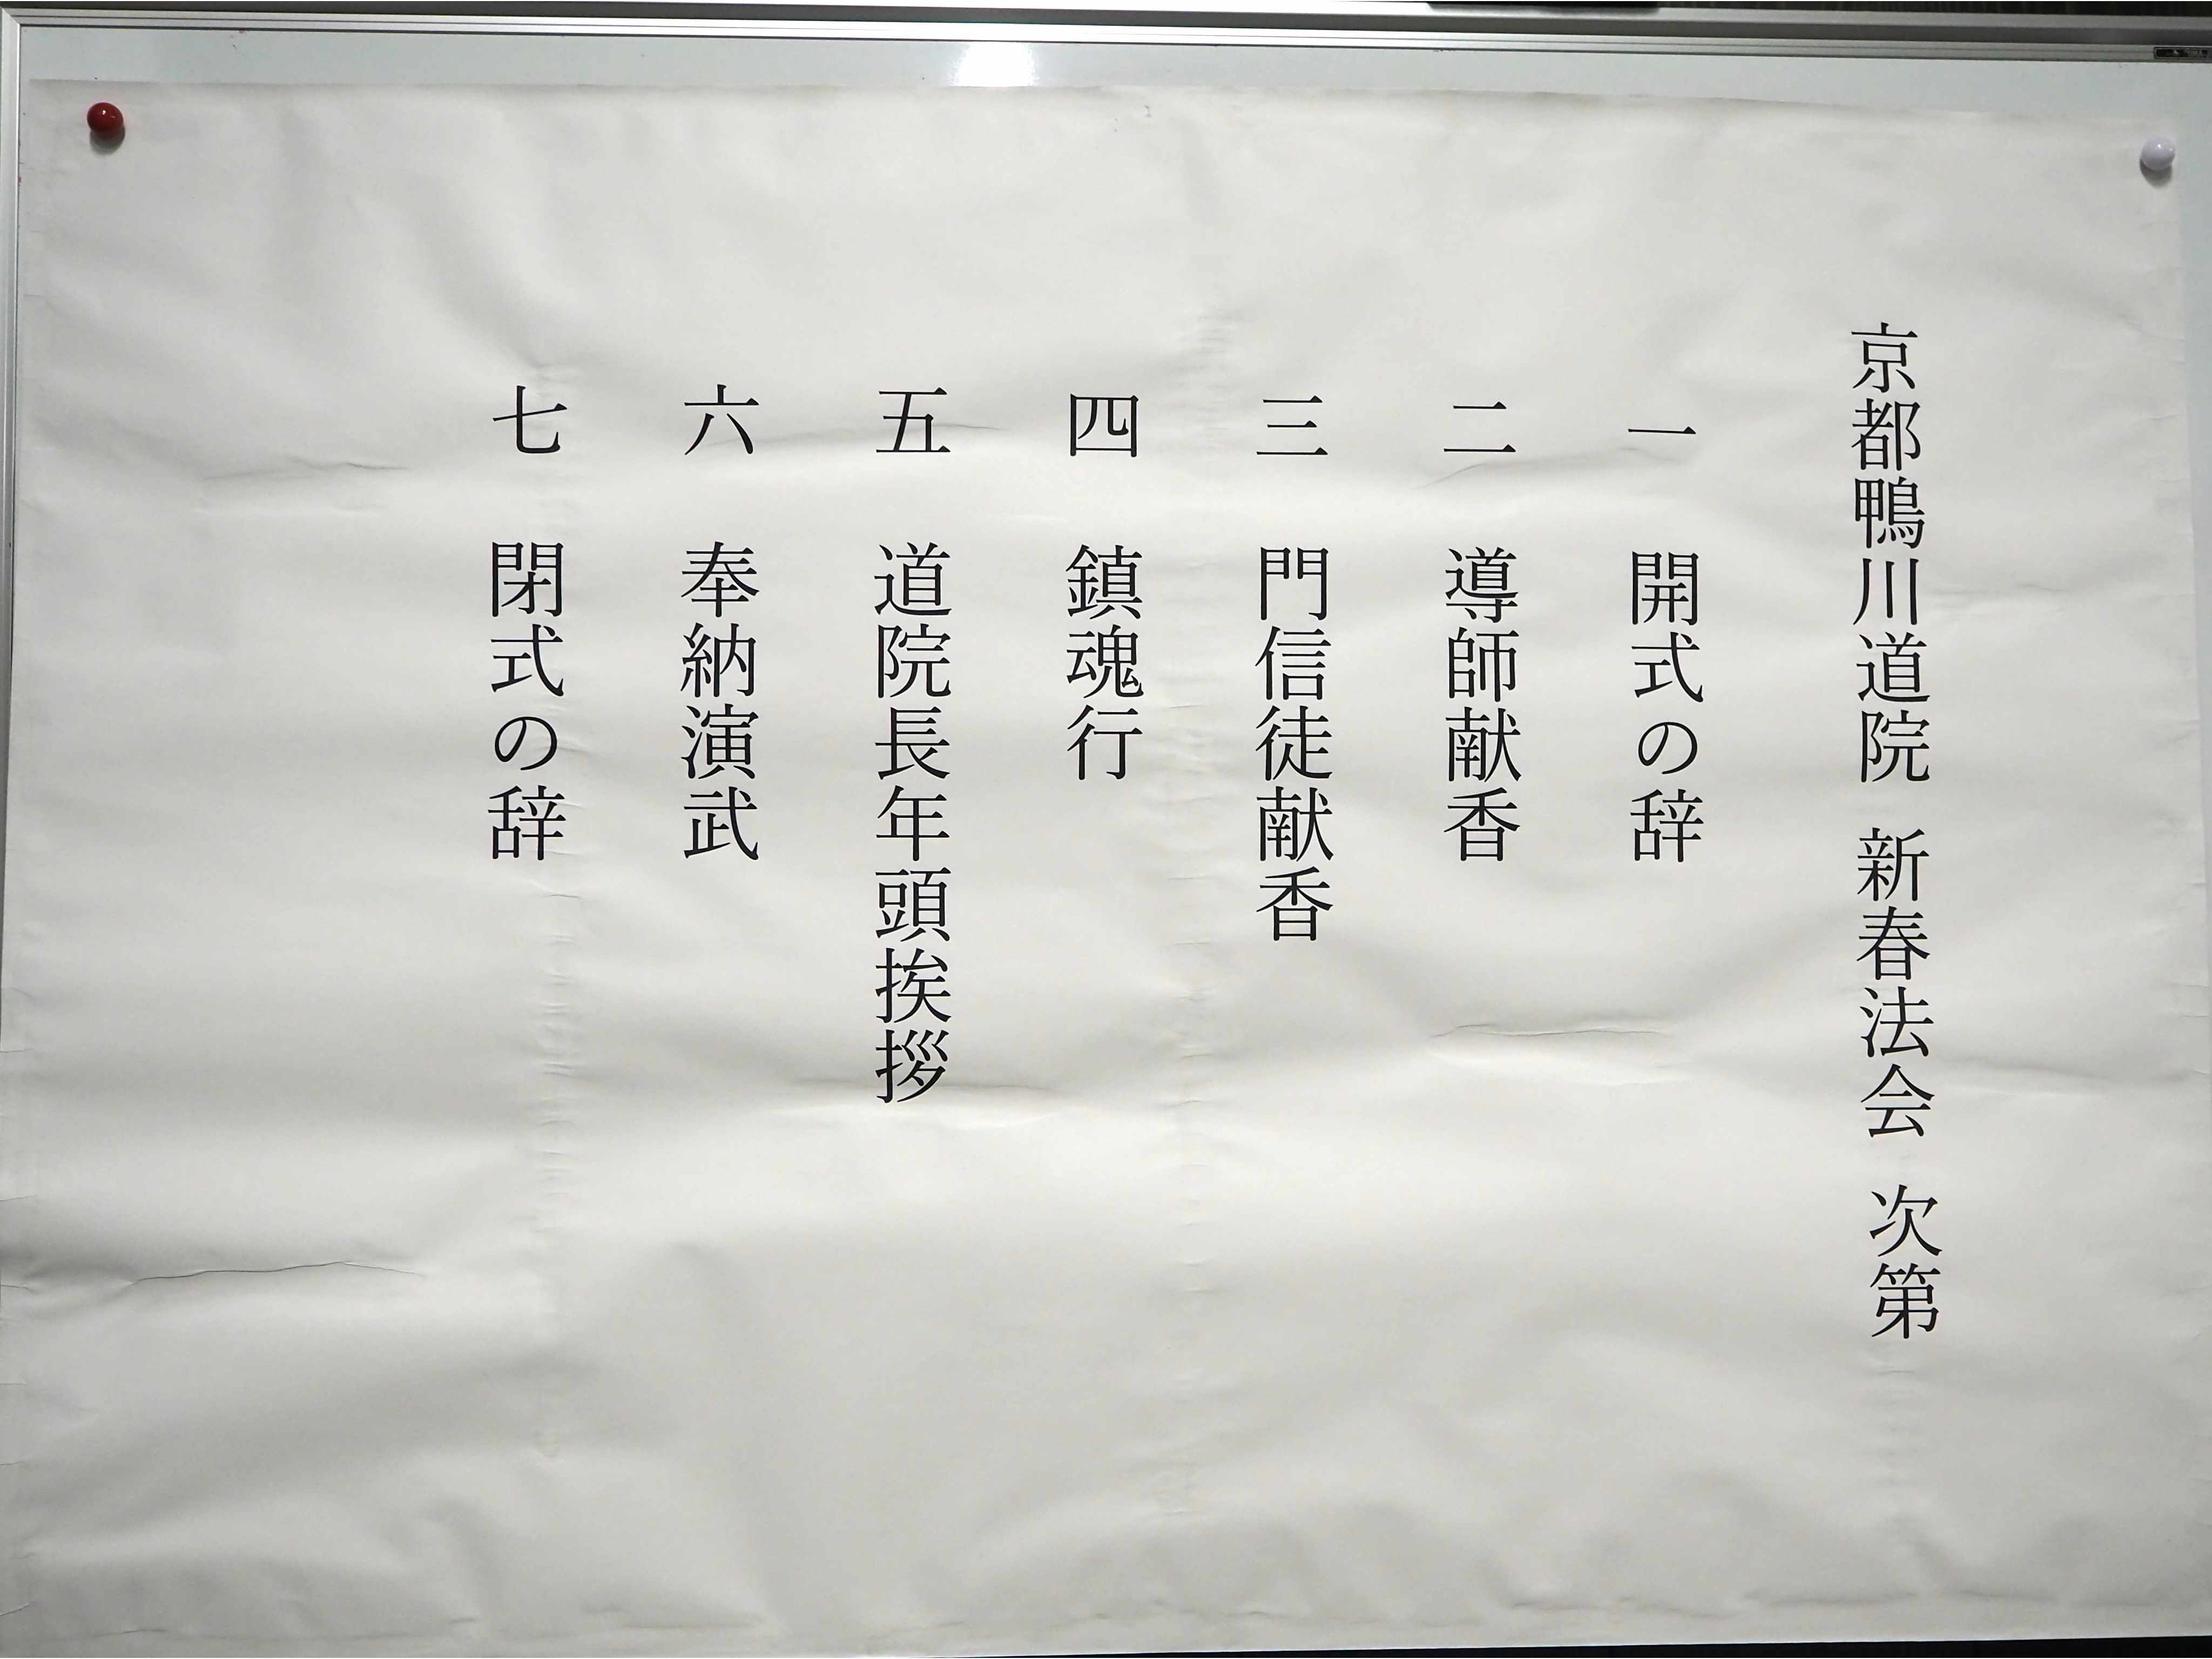 京都鴨川道院 新春法会 次第
一 開式の辞
二 導師献香
三 門信徒献香
四 鎮魂行
五 道院長年頭挨拶
六 奉納演武
七 閉式の辞